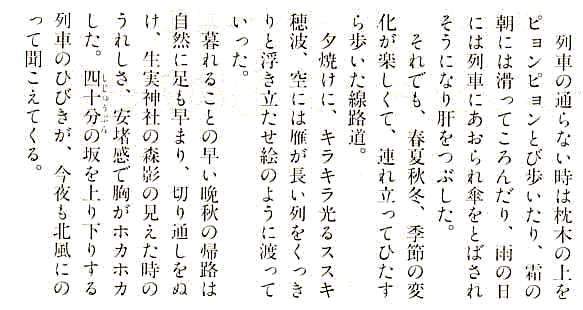 列車の通らない時は枕木の上を
ピョンピョンとび歩いたり、霜の
朝には滑ってころんだり、雨の日
には列車にあおられ傘をとばされ
そうになり肝をつぶした。
それでも、春夏秋冬、季節の変
化が楽しくて、連れ立ってひたす
ら歩いた線路道。
夕焼けに、キラキラ光るススキ
穂波、空には雁が長い列をくっき
りと浮き立たせ絵のように渡って
いった。
暮れることの早い晩秋の帰路は
自然に足も早まり、切り通しをぬ
け、生実神社の森影の見えた時の
うれしさ、安堵感で胸がホカホカ
した。四十分の坂を上り下りする
しじゅうぶん
列車のひびきが、今夜も北風にの
って聞こえてくる。